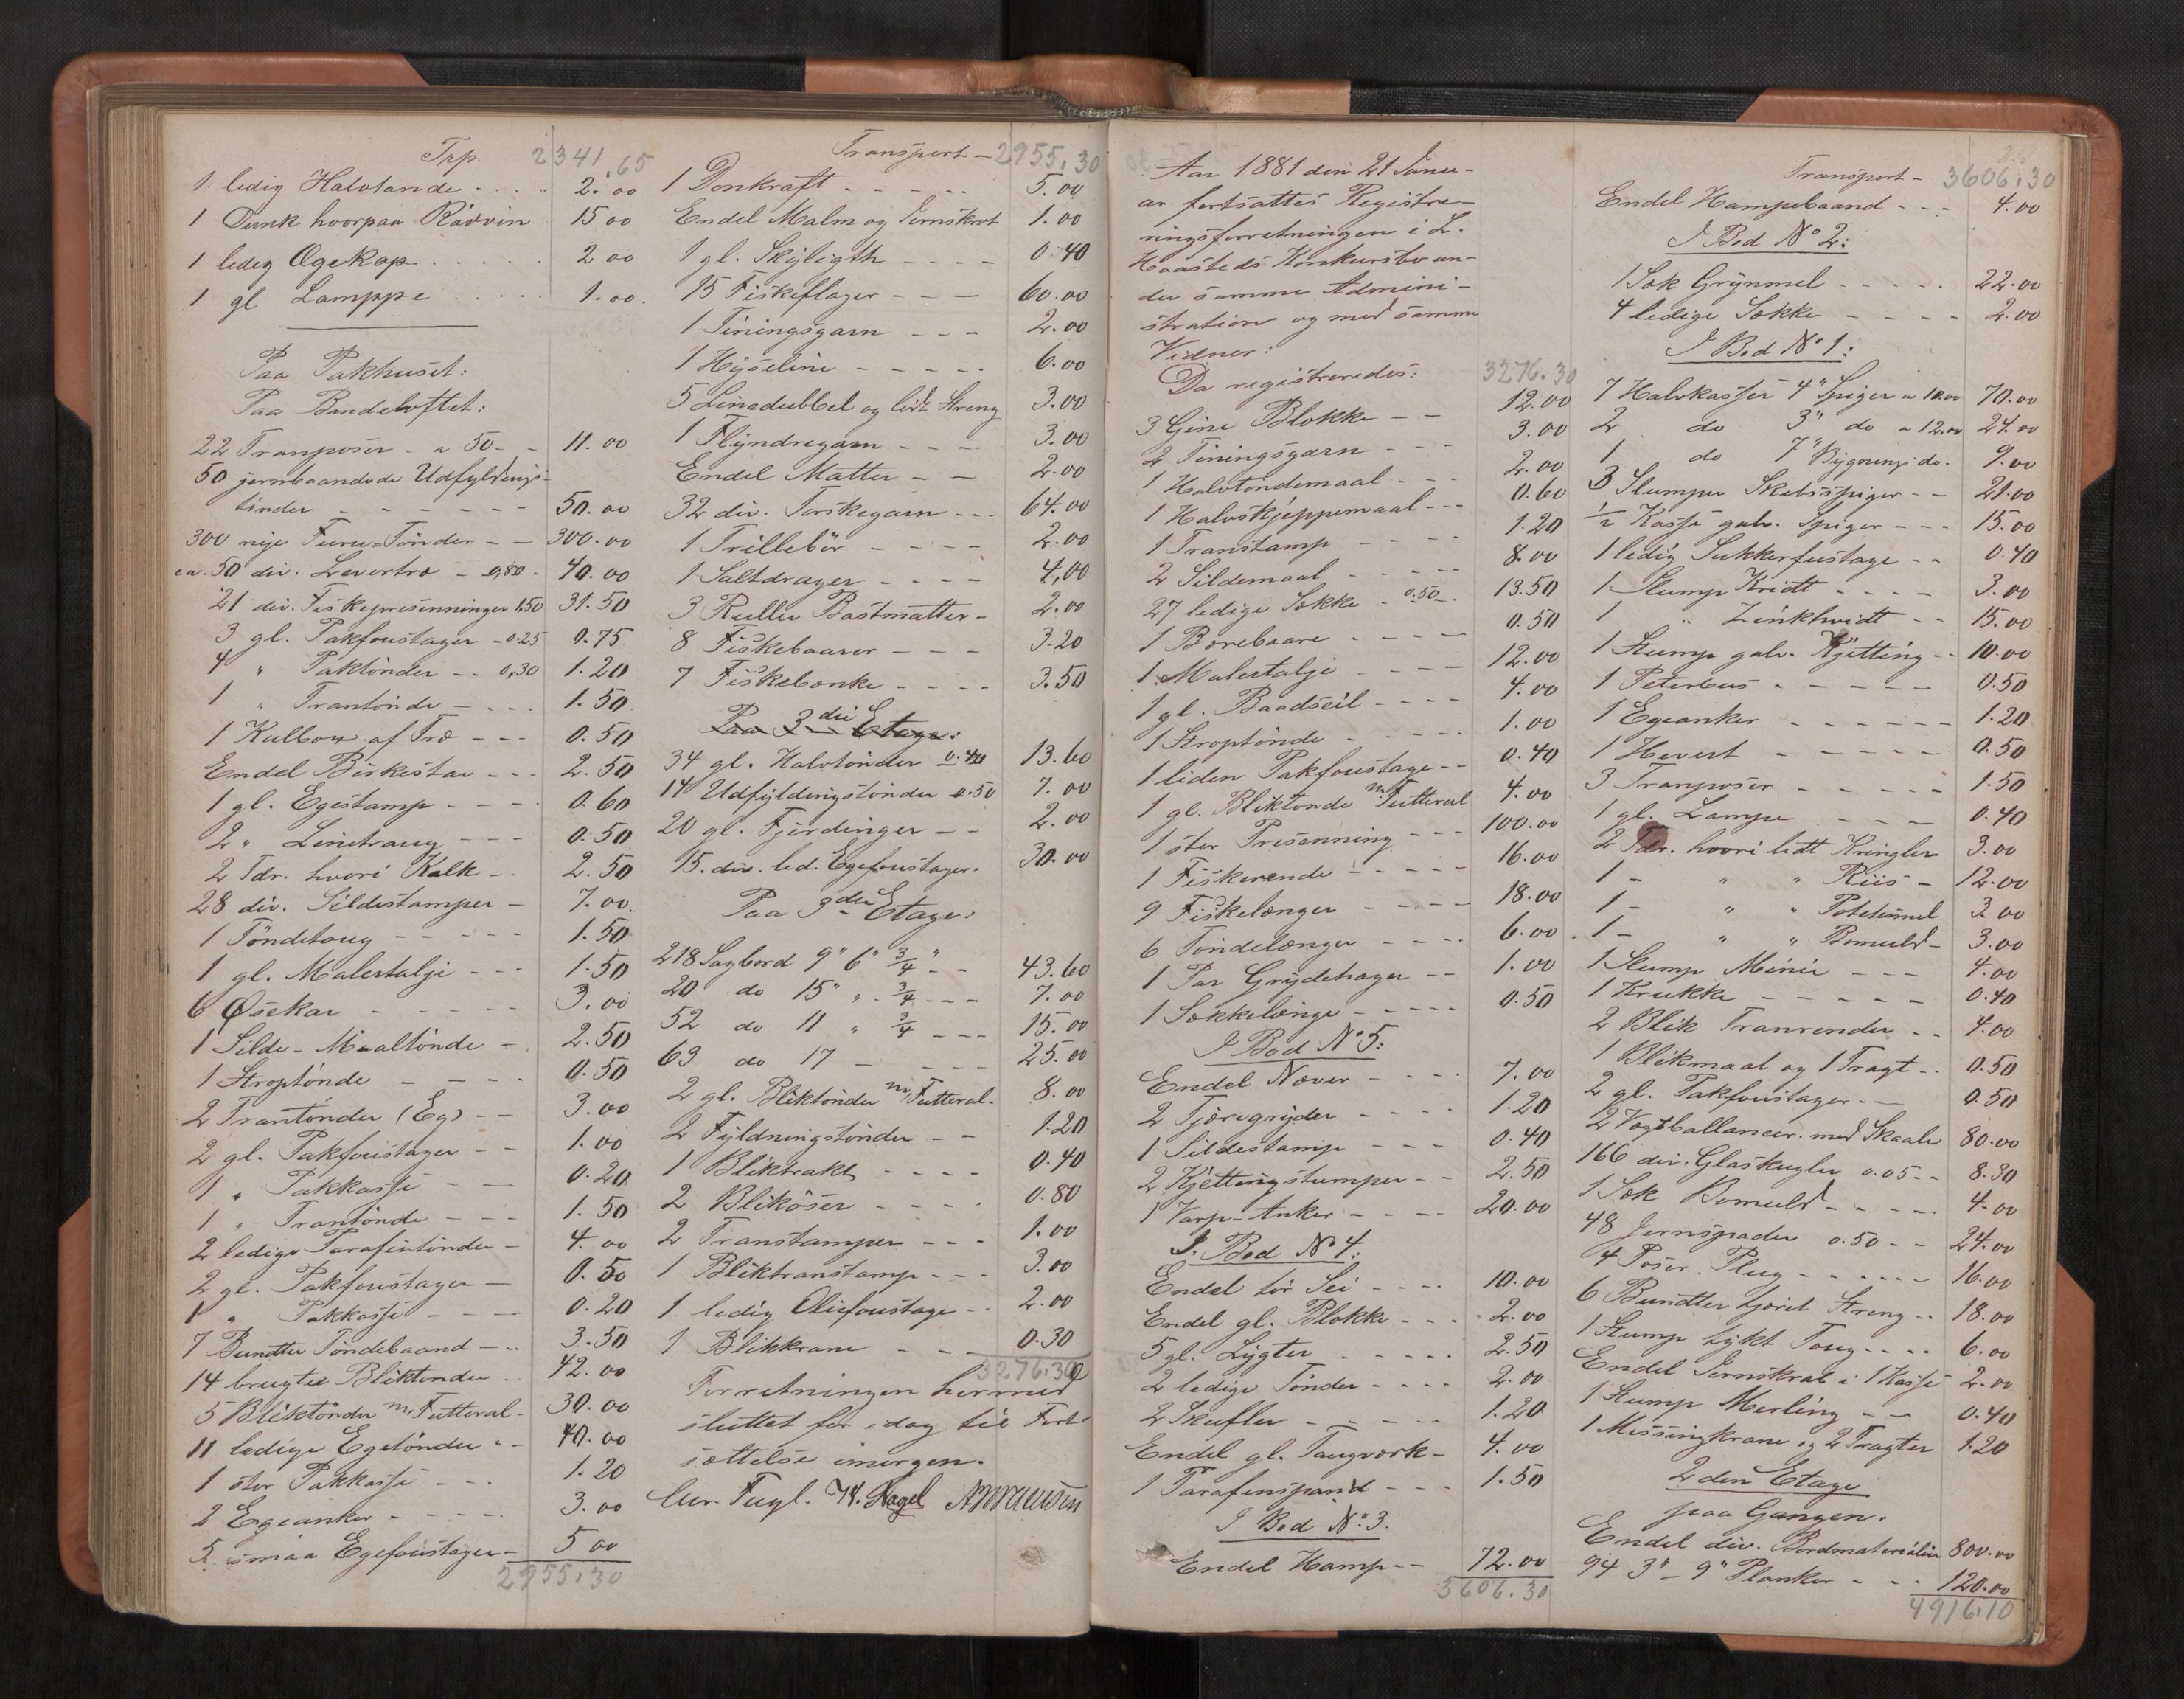 Trp. 2341.65
1 ledig Halvtønde 2.00
1 Dunk hvorpaa Rødvin 15 00
1 ledig Øgekop 2 00
1 gl Lamppe 1.00
Paa Pakhuset:
Paa Bandeloftet:
22 Tranposer a 50 11.00
50 jernbaandede Udfyldnings-
tønder 50.00
300 nye Furu Tønder 300.00
ca. 50 div. Levertrø 0,80 40.00
21 div. Fiskepresenninger 1.50 31.50
3 gl. Pakfoustager 0.25 0.75
4 " Paktønder 0,30 1.20
1 " Trantønde 1.50
1 Kulbox af Træ 0.50
Endel Birkestav 2.50
1 gl. Egestamp 0.60
2 " Linetraug 0.50
2 Tdr. hvori Kalk 2.50
28 div. Sildestamper 7.00
1 Tøndetoug 1.50
1 gl. Malertalje 1.50
6 Øsekar 3.00
1 Silde-Maaltønde 2.50
1 Stroptønde 0.50
2 Trantønder (Eg) 3.00
2 gl. Pakfoustager 1.00
1 " Pakkasse 0.20
1 " Trantønde 1.50
2 ledige Parafintønder 4.00
2 gl. Pakfoustager 0.50
1 " Pakkasse 0.20
7 Bundter Tøndebaand 3.50
14 brugte Bliktønder 42.00
5 Bliktønder m/ Futteral 30.00
11 ledige Egetønder 40.00
1 stor Pakkasse 1.20
2 Egeanker 3.00
5 smaa Egefoustager 5 00
2955.30
Transport 2955.30
1 Donkraft 5.00
Endel Malm og Jernskrot 1.00
1 gl. Skyligth 0.40
15 Fiskeflager 60.00
1 Tiningsgarn 2.00
1 Hyseline 6.00
5 Linedubbel og lidt Streng 3.00
1 Flyndregarn 3.00
Endel Matter 2.00
32 div. Torskegarn 64.00
1 Trillebør 2.00
1 Saltdrager 4,00
3 Ruller Bastmatter 2.00
8 Fiskebaarer 3.20
7 Fiskebænke 3.50
Paa 3die Etage:
34 gl. Halvtønder 0.40 13.60
14 Udfyldingstønder 0.50 7.00
20 gl. Fjerdinger 2.00
15. div. led. Egefoustager 30.00
Paa 3die Etage:
218 Sagbord 9" 6" 3/4" 43.60
20 do 15" " 3/4 7.00
52 do 11 " 3/4 15.00
63 do 17 25.00
2 gl. Bliktønder m/ Futteral 8.00
2 Fyldningstønder 1.20
1 Bliktrakt 0.40
2 Blikøser 0.80
2 Transtamper 1.00
1 Bliktranstamp 3.00
1 ledig Oliefoustage 2.00
1 Blikkrane 0.30
3276.30
Forretningen hermed
sluttet for idag til Fort-
sættelse imorgen.
Chr. Fugl. H. Nagel
Aar 1881 den 21 Janu-
ar fortsattes Registre-
ringsforretningen i L.
Haasteds Konkursbo un-
der samme Admini-
stration og med samme
Vidner:
Da registreredes: 3276.30
3 Gine Blokke 12.00
2 Tiningsgarn 3.00
1 Halvtøndemaal 2.00
1 Halvskjeppemaal 0.60
1 Transtamp 1.20
2 Sildemaal 8.00
27 ledige Sække 0.50 13.50
1 Børebaare 0.50
1 Malertalje 12.00
1 gl. Baadseil 4.00
1 Stroptønde 1.00
1 liden Pakfoustage 0.40
1 gl. Bliktønde m/ Futteral 4.00
1 stor Presenning 100.00
1 Fiskerende 16.00
9 Fiskelænger 18.00
6 Tøndelænger 6.00
1 Par Grydehager 1.00
1 Sækkelænge 0.50
I Bod No 5:
Endel Næver 7.00
2 Tjæregryder 1.20
1 Sildestamp 0.40
2 Kjettingstumper 2.50
1 Varp-Anker 20.00
I Bod No 4:
Endel tør Sei 10.00
Endel gl. Blokke 2.00
5 gl. Lygter 2.50
2 ledige Tønder 2.00
2 Skufler 1.20
Endel gl. Taugværk 4.00
1 Parafinspand 1.50
I Bod No 3.
Endel Hamp 72.00
3606.30
Transport 3606.30
Endel Hampebaand 4.00
I Bod No 2:
1 Sæk Grynmel 22.00
4 ledige Sække 2.00
I Bod No 1:
7 Halvkasser 4" Spiger a 10.00 70.00
2 do 3" do a 12.00 24.00
1 do 7" Bygnings do. 9.00
3 Slumper Skibsspiger 21.00
1/2 Kasse galv. Spiger 15.00
1 ledig Sukkerfustage 0.40
1 Slump Kridt 3.00
1 " Zinkhvidt 15.00
1 Stump galv. Kjetting 10.00
1 Peterbus 0.50
1 Egeanker 1.20
1 Hevert 0.50
3 Tranposer 1.50
1 gl. Lampe 0.40
2 Tdr. hvori lidt Kringler 3.00
1 - " " Riis 12.00
1 - " " Potetemel 3 00
1 - " " Bomuld 3.00
1 Slump Mønie 4.00
1 Krukke 0.40
2 Blik Tranrender 4.00
1 Blikmaal og 1 Tragt 0.50
2 gl. Pakfoustager 0.50
2 Vogtballancer med Skaale 80.00
166 div. Glaskugler 0.05 8.30
1 Sæk Bomuld 4.00
48 Jernspader 0.50 24.00
4 Poser Plug 16.00
6 Bundter tjæret Streng 18.00
1 Stump tykt Toug 6.00
Endel Jernskrab i 1 Kasse 2.00
1 Slump Merling 0.40
1 Missingkrane og 2 Tragter 1.20
2den Etage
paa Gangen.
Endel div. Bordmaterialier 800.00
94 3" - 9" Planker 120.00
4916.10